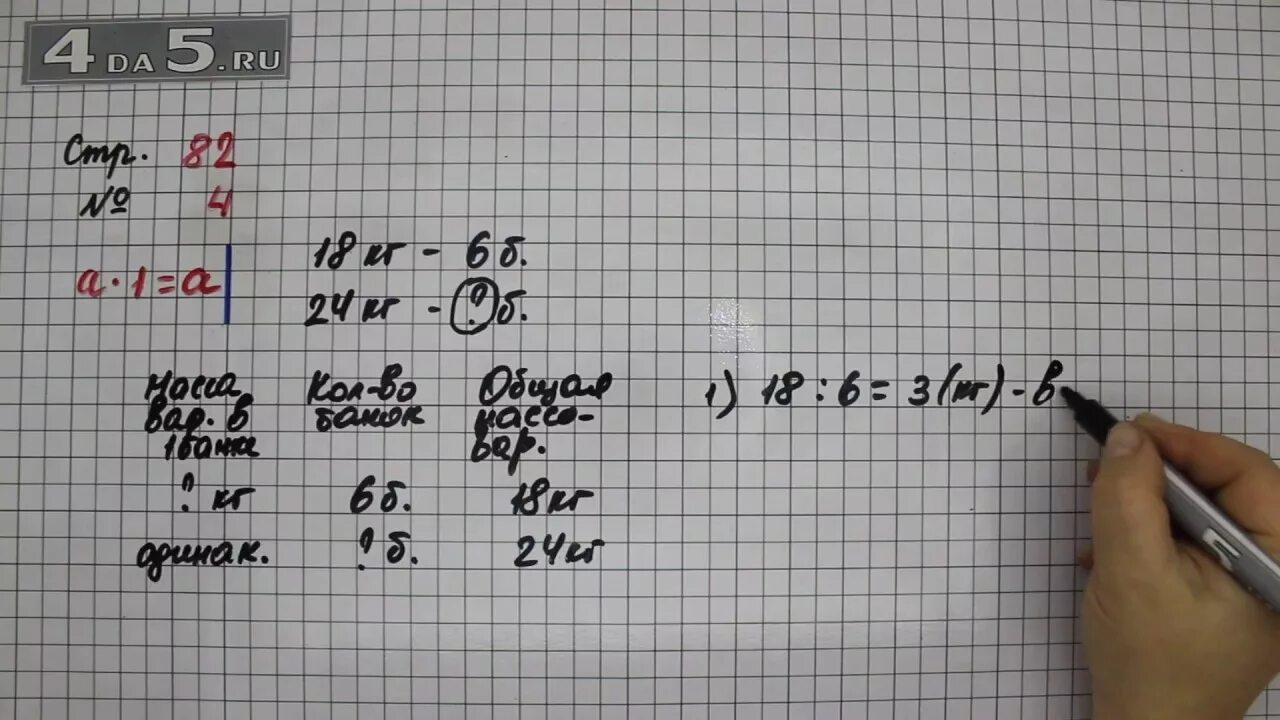 4 DA 5.RU
Стр. 82
№ 4
a · 1 = a
18 кг - 6 б.
24 кг - ? б.
Масса Кол-во Общая
вар. в банок масса
1 банке вар.
? кг 6 б. 18 кг
одинак. ? б. 24 кг
1) 18 : 6 = 3 (кг) - в